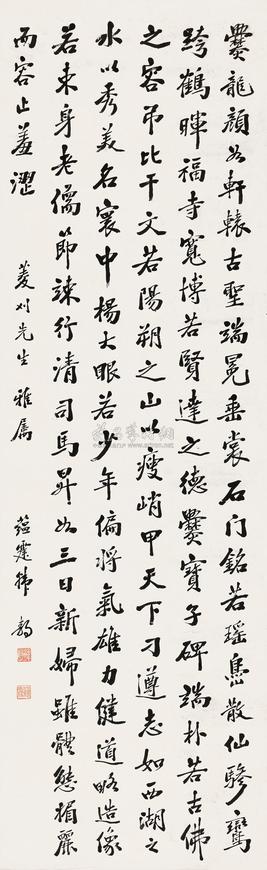 爨龍顏如軒轅古聖端冕垂裳石门銘若瑶島散仙驂鸞
跨鶴暉福寺寬博若賢達之德爨寶子碑端朴若古佛
之容吊比干文若陽朔之山以瘦峭甲天下刁遵志如西湖之
水以秀美名寰中楊大眼若少年偏將氣雄力健道略造像
若束身老儒節疎行清司馬昇如三日新婦雖體態媚麗
而容止羞澀
菱刈先生雅屬